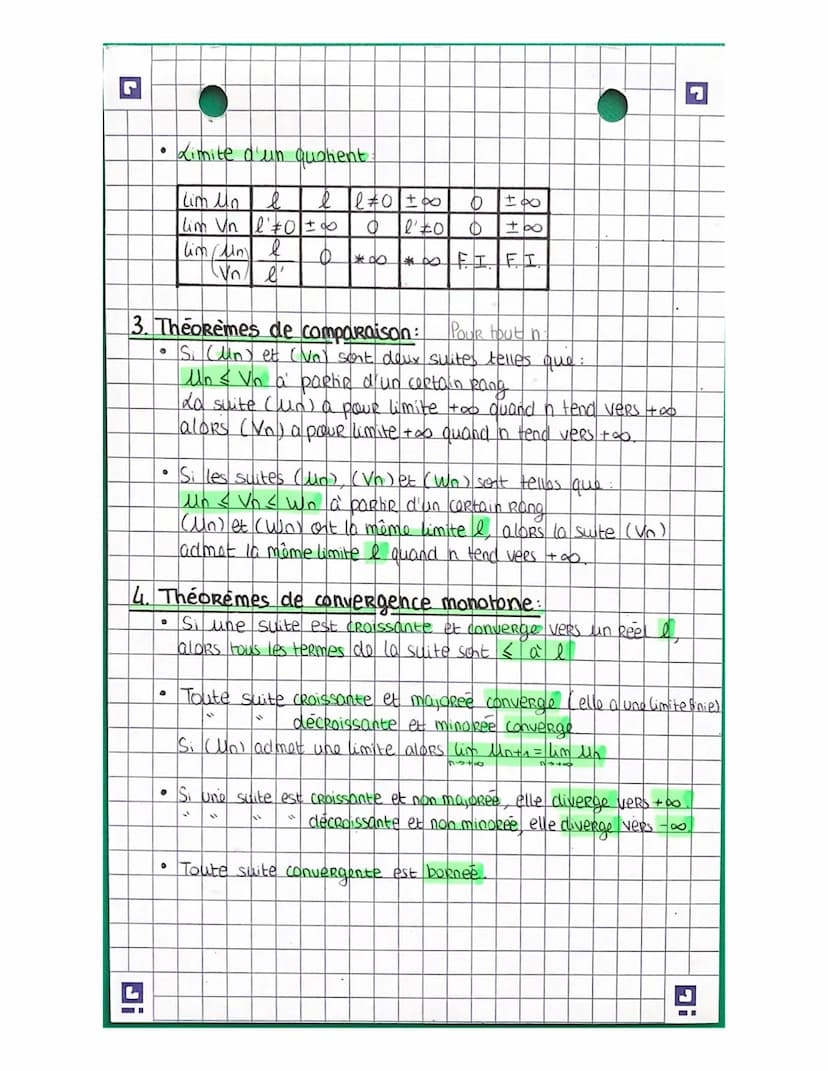 • Limite d'un quotient:
lim Un | l | l | l≠0 | ±∞ | 0 | ±∞
lim Vn | l'≠0 | ±∞ | 0 | l'≠0 | 0 | ±∞
lim (Un/Vn) | l/l' | 0 | *∞ | *∞ | F.I. | F.I.
3. Théorèmes de comparaison: Pour tout n:
• Si (Un) et (Vn) sont deux suites telles que:
Un ≤ Vn à partir d'un certain rang
La suite (Un) a pour limite +∞ quand n tend vers +∞
alors (Vn) a pour limite +∞ quand n tend vers +∞.
• Si les suites (Un), (Vn) et (Wn) sont telles que:
Un ≤ Vn ≤ Wn à partir d'un certain rang
(Un) et (Wn) ont la même limite l, alors la suite (Vn)
admet la même limite l quand n tend vers +∞.
4. Théorèmes de convergence monotone:
• Si une suite est croissante et converge vers un réel l,
alors tous les termes de la suite sont ≤ à l
• Toute suite croissante et majorée converge (elle a une limite finie)
" " décroissante et minorée converge
Si (Un) admet une limite alors lim Un+1 = lim Un
n→+∞ n→+∞
• Si une suite est croissante et non majorée, elle diverge vers +∞.
" " " " décroissante et non minorée, elle diverge vers -∞.
• Toute suite convergente est bornée.